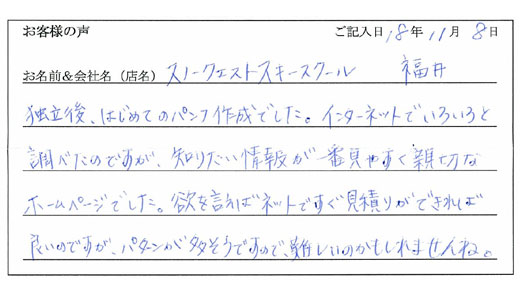 お客様の声 ご記入日 18年 11月 8日
お名前&会社名（店名） スノークエストスキースクール 福井
独立後、はじめてのパンフ作成でした。インターネットでいろいろと
調べたのですが、知りたい情報が一番見やすく親切な
ホームページでした。欲を言えばネットですぐ見積りができれば
良いのですが、パターンが多そうですので、難しいのかもしれませんね。